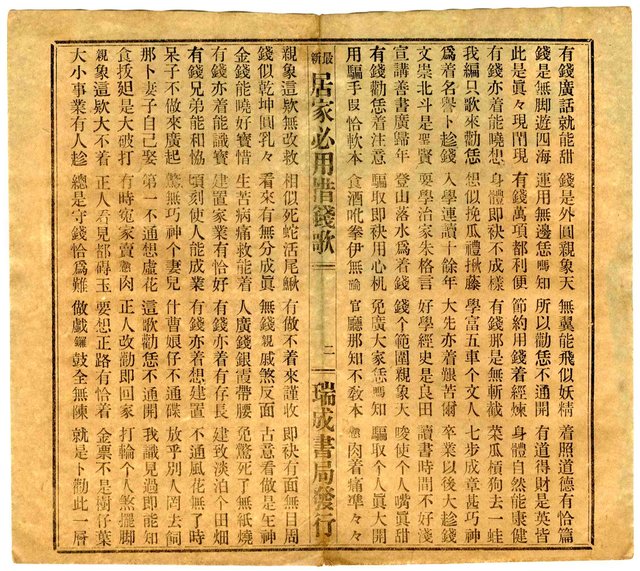 有錢廣話就能甜 錢是外圓親象天 無翼能飛似妖精 着照道德有恰篇
錢是無脚遊四海 運用無邊恁嗎知 所以勸恁不通開 有道得財是英皆
此是眞々現閂現 有錢萬項都利便 節約用錢着經煉 身體自然能康健
有錢亦着能曉想 身體即袂不成樣 有錢那是無斬截 菜瓜槓狗去一蛙
我編只歌來勸恁 想係挽瓜禮揪藤 學富五車个文人 七步成章甚巧神
爲着名譽卜趁錢 入學連讀十餘年 大先亦着艱苦爾 卒業以後大趁錢
文崇北斗是聖賢 要學治家朱格言 好學經史是良田 讀書時間不好淺
宣講善書廣歸年 登山落水爲着錢 錢个範圍親象天 唆使个人嘴眞甜
有錢勸恁着注意 騙取即袂用心机 免廣大家恁嗎知 騙取个人眞大開
用騙手段恰軟本 食酒吪拳伊無論 官廳那知不敎本 肉着痛準々々
最新 居家必用惜錢歌 二 瑞成書局發行
親象這欵無改救 相似死蛇活尾鰍 有做不着來謹收 即袂有面無目周
錢似乾坤圓乳々 看來有無分成眞 無錢親戚煞反面 古意看做是生神
金錢能曉好寶惜 生苦病痛救能着 人廣錢銀霞帶腰 免驚死了無紙燒
有錢亦着能識寶 建置家業有恰好 有錢亦着有存長 建致淡泊个田畑
有錢兄弟能和協 頃刻使人能成業 有錢亦着想建置 不通風花無了時
呆子不做來廣起 驚無巧神个妻兒 什曹娘仔不通碟 放乎別人罔去飼
那卜妻子自己娶 第一不通想虛花 這歌勸恁不通開 我識見過即能知
食是大破打 有時寃家賣肉 正人改勸即回家 打輪个人煞擺脚
親象這欵大不着 正人看見都磚玉 要想正路有恰着 金票不是樹仔葉
大小事業有人趁 總是守錢恰爲難 做戯鑼鼓全無陳 就是卜勸此一層